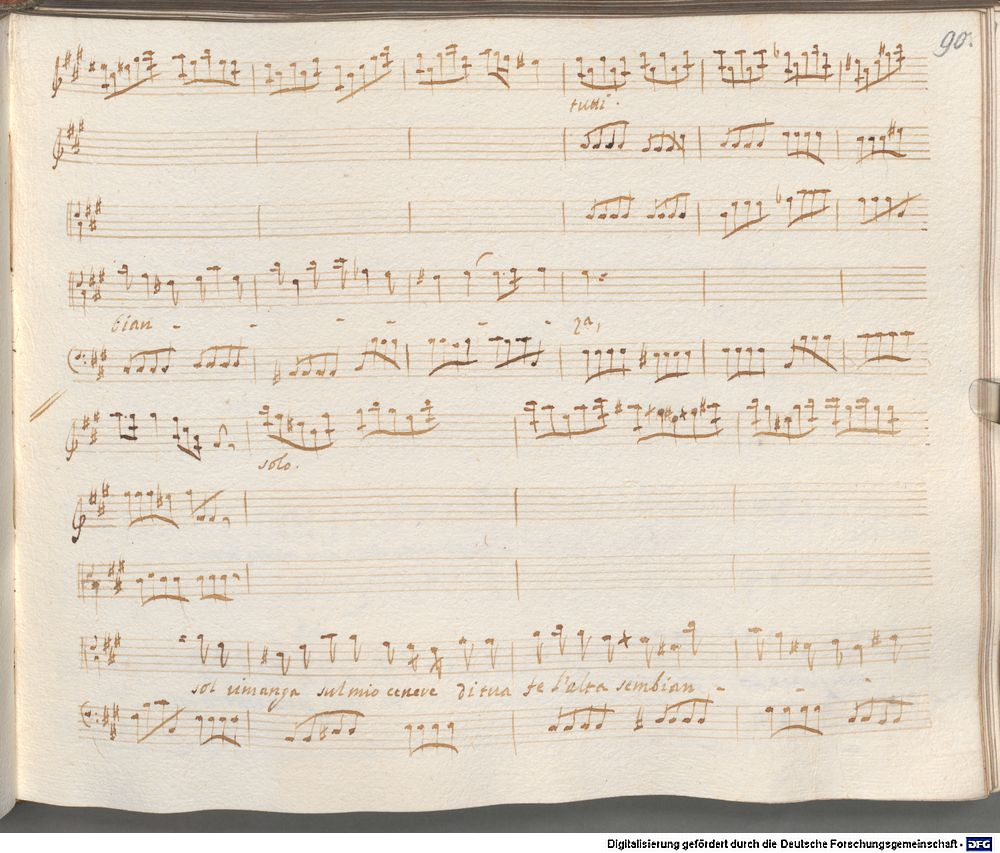 90.
tutti.
bian - - - - - - za,
solo.
sol rimanga sul mio cenere di tua fe l'alta sembian - - -
Digitalisierung gefördert durch die Deutsche Forschungsgemeinschaft - DFG